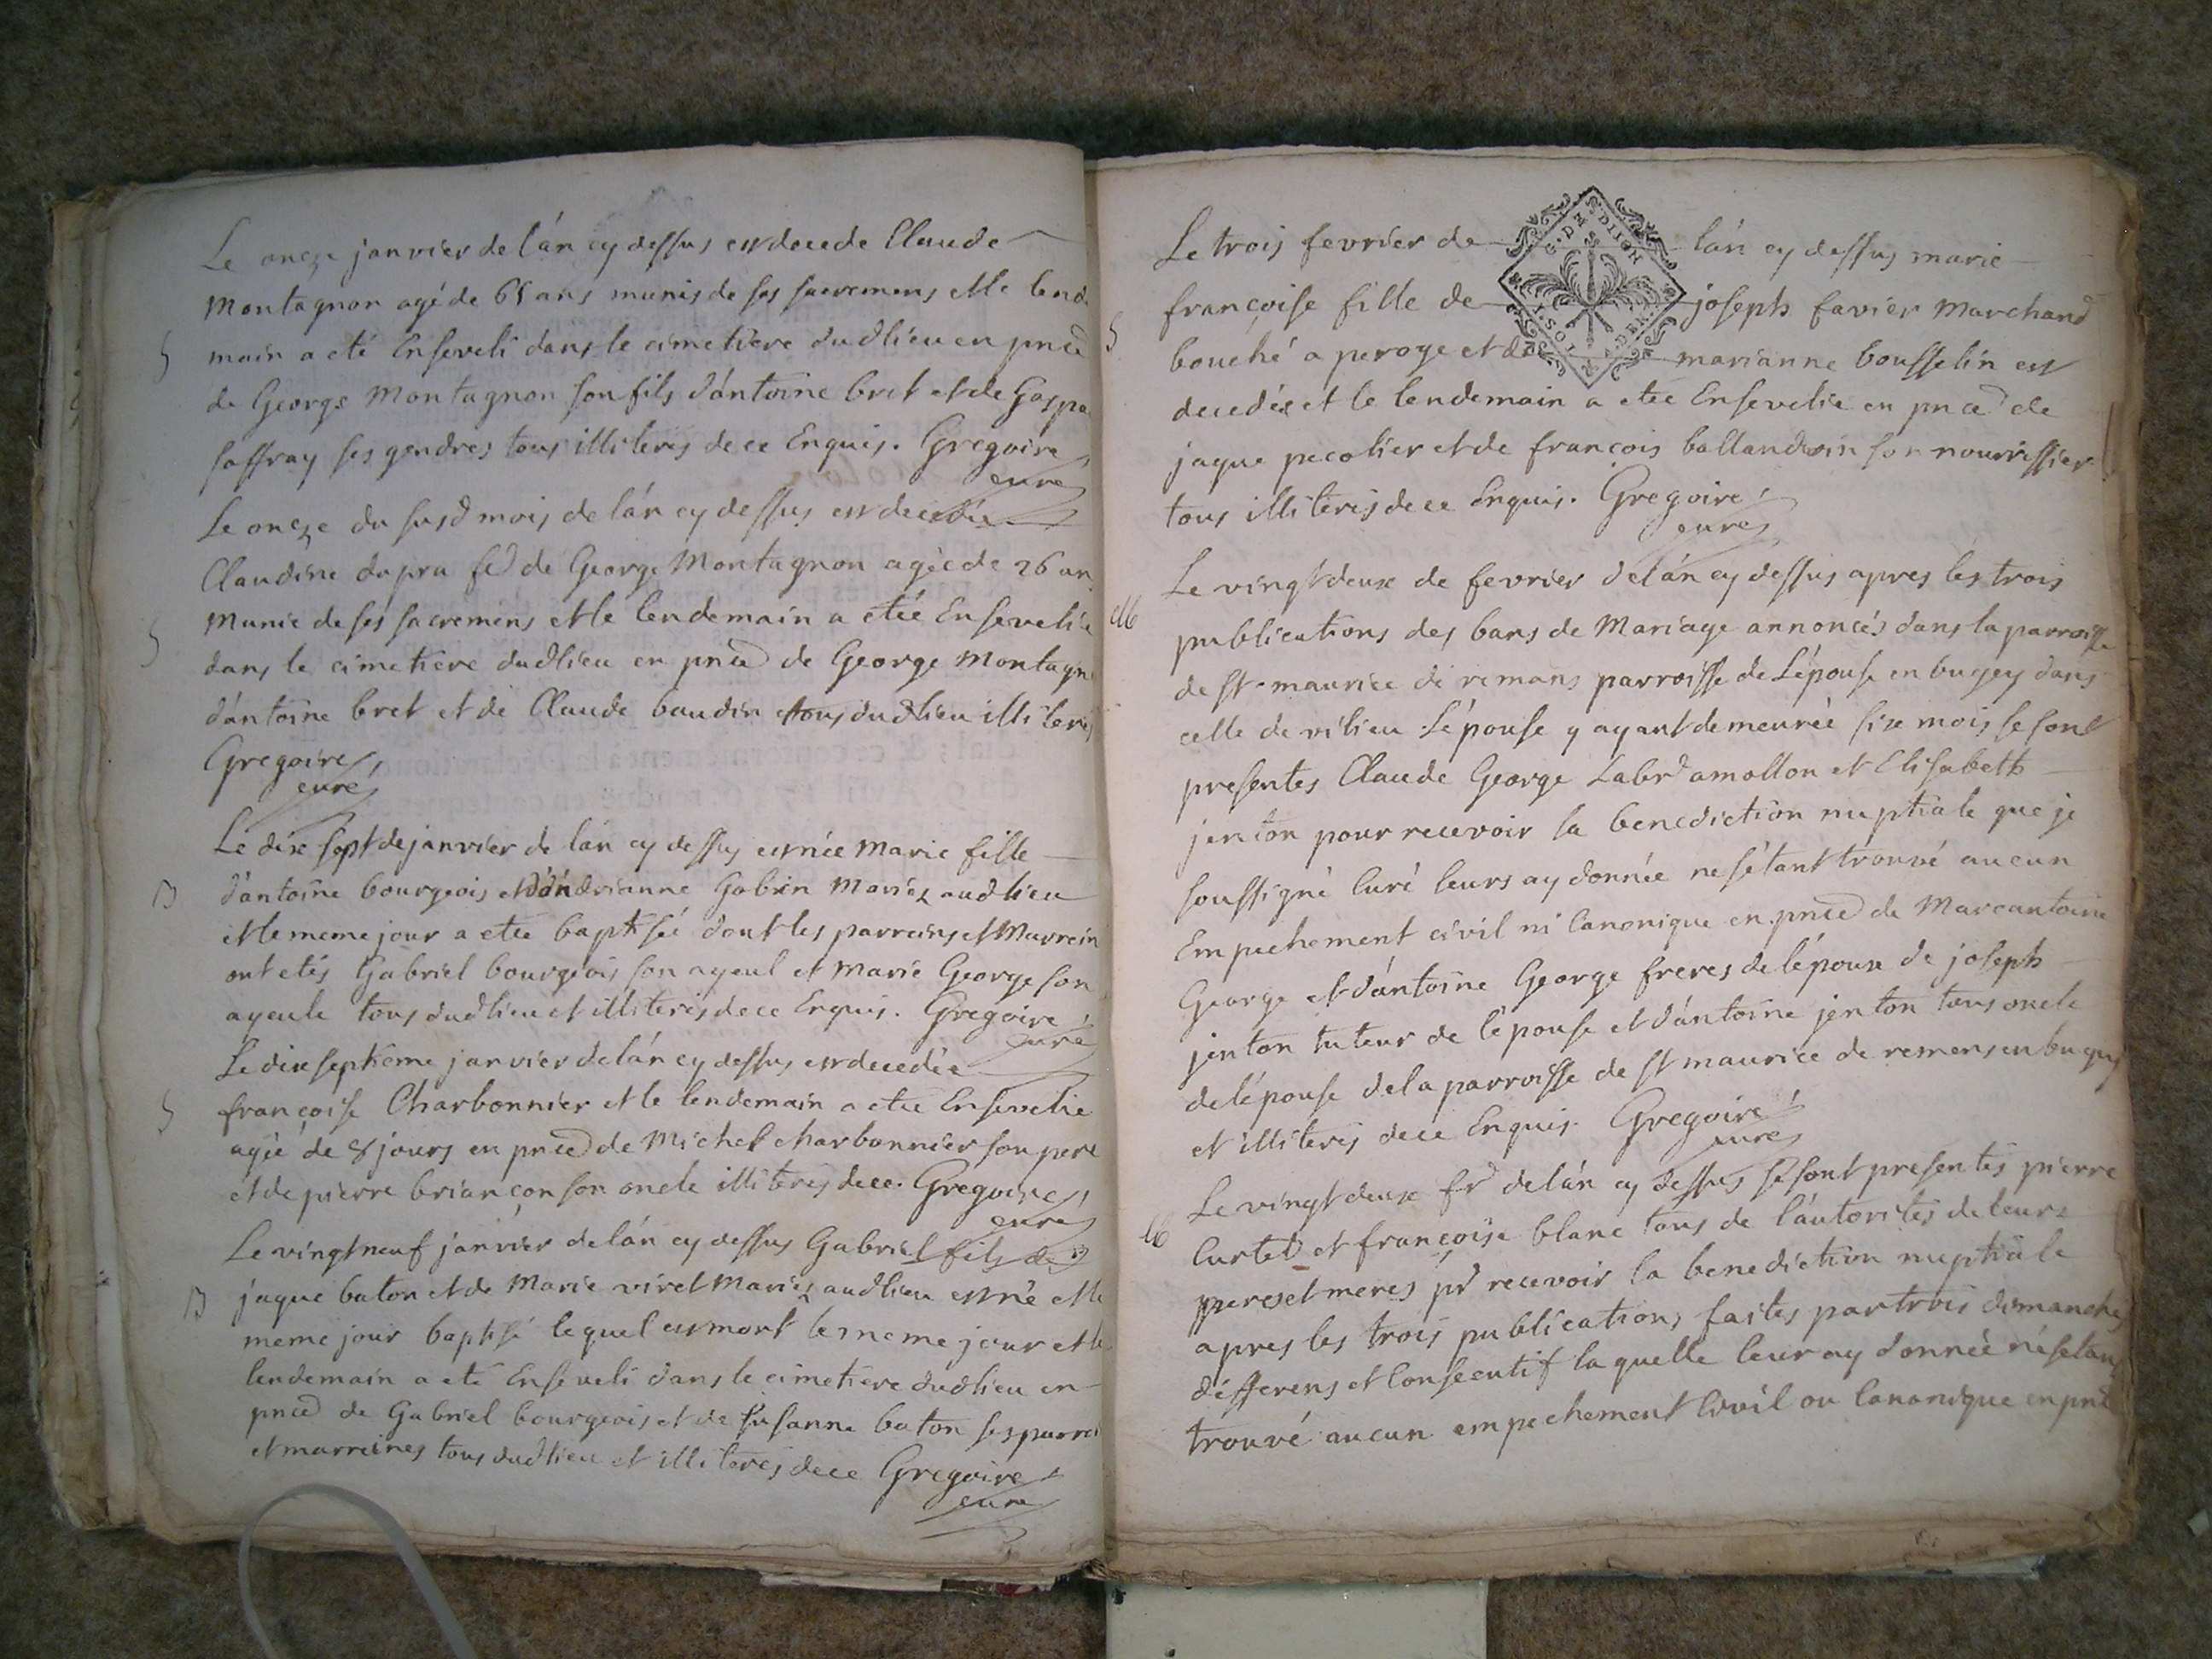 Le oncze janvier de lán cy dessus est decede Claude
Montagnon agé de 65 ans munis de ses sacremens et le lend
S
main a eté Enseveli dans le cimetiere dudlieu en pnce
de George Montagnon son fils d'ántoine bret et de Gaspa
saffray ses gendres tous illiterés de ce Enquis. Gregoire
curé
Le oncze du susd mois de lán cy dessus est decedée
Claudine dupra fe de George Montagnon agée de 26 an
S
Munie de ses sacremens et le lendemain a etée Ensevelie
dans le cimetiere dudlieu en pnce de George Montagn
d'ántoine bret et de Claude baudin tous dudlieu illiterés
Gregoire
curé
Le dix sept de janvier de lán cy dessus est née Marie fille
B
d'ántoine bourgeois et d'ándrianne Gabin Mariés audlieu
et le meme jour a etée baptisée dont les parreins et Marrein
ont etés Gabriel bourgeois son ayeul et Marie George son
ayeule tous dudlieu et illiterés de ce Enquis. Gregoire
curé
Le dix septieme janvier de lán cy dessus est decedée
S
françoise Charbonnier et le lendemain a etée Ensevelie
agée de 8 jours en pnce de Michel charbonnier son pere
et de pierre briançon son oncle illiterés de ce. Gregoire
curé
Le vingt neuf janvier de lán cy dessus Gabriel fils de
B
jaque baton et de Marie viret Mariés audlieu est né et le
meme jour baptisé lequel est mort le meme jour et le
lendemain a eté Enseveli dans le cimetiere dudlieu en
pnce de Gabriel bourgeois et de susanne baton ses parrei
et marreines tous dudlieu et illiterés de ce Gregoire
curé
Le trois fevrier de lán cy dessus marie
françoise fille de joseph favier Marchand
S
bouché a peroge et de marianne bousselin est
decedée et le lendemain a etée Ensevelie en pnce de
jaque pecolier et de françois ballandrin son nourrissier
tous illiterés de ce Enquis. Gregoire
curé
G. DE DIJON
Le vingt deux de fevrier de lán cy dessus apres les trois
M
publications des bans de Mariage annoncés dans la parroisse
de st maurice de remans parroisse de Lépouse en bugey dans
celle de vilieu Lépouse y ayant demeurée six mois se sont
presentes Claude George Labr amollon et Elisabeth
jenton pour recevoir la benediction nuptiale que je
soussigné Curé leurs ay donnée ne sétant trouvé aucun
Empechement civil ni Canonique en pnce de Marcantoine
George et d'ántoine George freres de lépoux de joseph
jenton tuteur de lépouse et d'ántoine jenton tous oncle
de lépouse de la parroisse de st maurice de remens en bugey
et illiterés de ce Enquis. Gregoire
curé
Le vingt deux fr de lán cy dessus se sont presentés pierre
M
Curtet et françoise blanc tous de láutorités de leurs
peres et meres pr recevoir la benediction nuptiale
apres les trois publications faites par trois dimanches
differens et Consecutif laquelle leur ay donnée nésétant
trouvé aucun empechement Civil ou Canonique en pnce